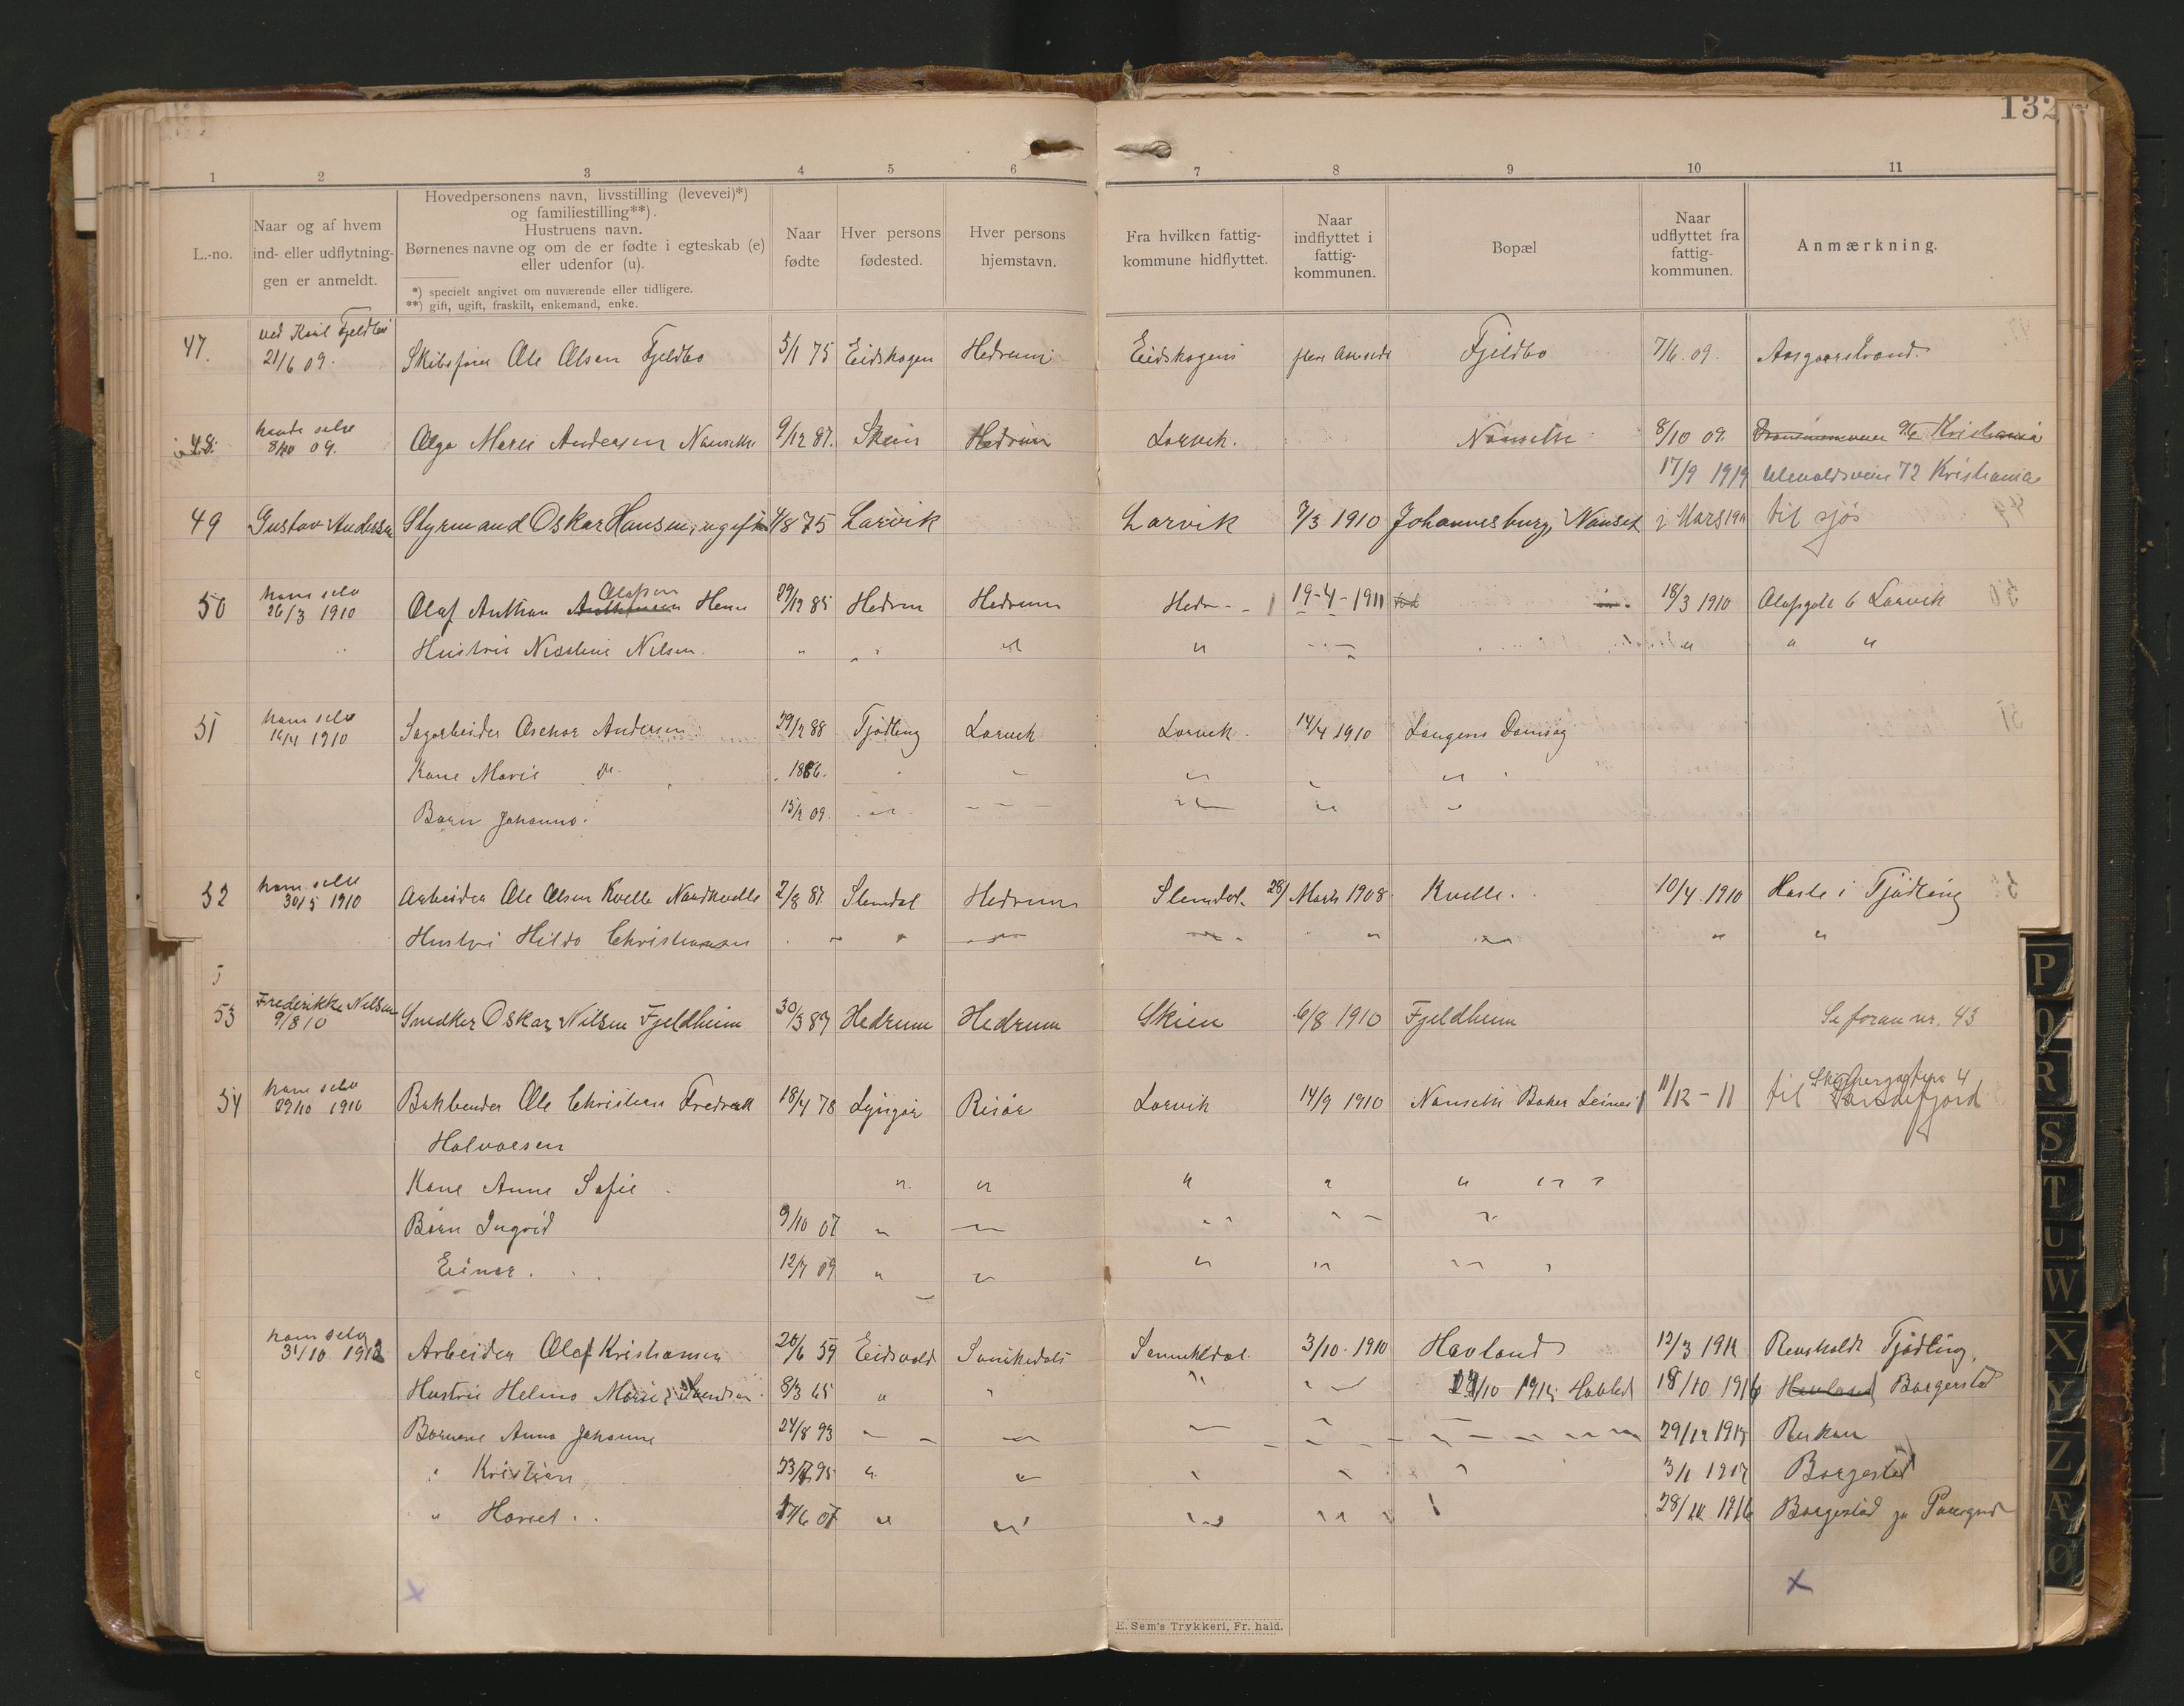 132
1 2 3 4 5 6 7 8 9 10 11
L.-no.
Naar og af hvem
ind- eller udflytning-
gen er anmeldt.
Hovedpersonens navn, livsstilling (levevei)*)
og familiestilling**).
Hustruens navn.
Børnenes navne og om de er fødte i egteskab (e)
eller udenfor (u).
*) specielt angivet om nuværende eller tidligere.
**) gift, ugift, fraskilt, enkemand, enke.
Naar
fødte
Hver persons
fødested.
Hver persons
hjemstavn.
Fra hvilken fattig-
kommune hidflyttet.
Naar
indflyttet i
fattig-
kommunen.
Bopæl
Naar
udflyttet fra
fattig-
kommunen.
Anmærkning.
ved Karl Fjeldbo
47. 21/6 09. Skibsfører Ole Olsen Fjeldbo 5/1 75 Eidskogen Hedrum Eidskogen Fjeldbo 7/6 09. Aasgaarstrand.
hende selv
48. 8/10 09. Olga Marie Andersen Nansethe 9/12 87. Skien Hedrum Larvik. Nansethe 8/10 09. Kristiania
17/9 1919 Ulevoldsveien 72 Kristiania
49 Gustav Andersen Styrmand Oskar Hansen, ugift 4/8 75 Larvik Larvik 7/3 1910 Johannesburg, Nanset i Mars 1911 til sjøs
ham selv Olafsen
50 26/3 1910 Olaf Anthon Anthonsen Hem 29/12 85 Hedrum Hedrum Hedr-- 19-4-1911 18/3 1910 Olafsgate 6 Larvik
Hustru Nicoline Nilsen. " " " " " " "
ham selv
51 14/4 1910 Sagarbeider Oschar Andersen 29/12 88 Tjødling Larvik Larvik. 14/4 1910 Laagens Damsag
Kone Marie do. 1886. " " "
Barn Johanna. 15/2 09. " " " "
ham selv
52 30/5 1910 Arbeider Ole Olsen Kvelle Nordkvelle 2/8 87. Slemdal Hedrum Slemdal. 28/ Marts 1908. Kvelle. 10/4. 1910 Haste i Tjødling
Hustru Hilda Christiansen " " " " " " "
53 Frederikke Nilsen 9/8 10 Snedker Oskar Nilsen Fjeldheim 30/3 87 Hedrum Hedrum Skien 6/8 1910 Fjeldheim Se foran nr. 43
ham selv
54 29/10 1910 Bokbinder Ole Christian Fredrik 18/4 78 Lyngør Risør Larvik 14/9 1910 Nansethe Baker Leines 11/12 - 11 til Sandefjord
Halvorsen
Kone Anne Sofie " " " " " "
Børn Ingrid 9/10 07 " " " " "
Einar. 12/7 09. " " " " "
ham selv
31/10 1912 Arbeider Olaf Kristiansen 20/6 59 Eidsvold Sanikedal Sannikedal. 3/10. 1910 Havland 12/3 1912 Renskold Tjødling.
Hustru Helma Marie Svendsen. 8/3 65 " " " " /10 1915 18/10 1916 Havland Borgestad
Børnene Anna Johanne 24/8 93 " " " " " 29/12 1917 Rukan
" Kristian 23/7 95 " " " " " 3/1 1917 Borgestad
" Harriet. 17/6 07 " " " " 28/12 1916 Borgestad
E. Sem's Trykkeri, Fr. hald.
P
Q
R
S
T
U
W
X
Y
Z
Æ
Ø